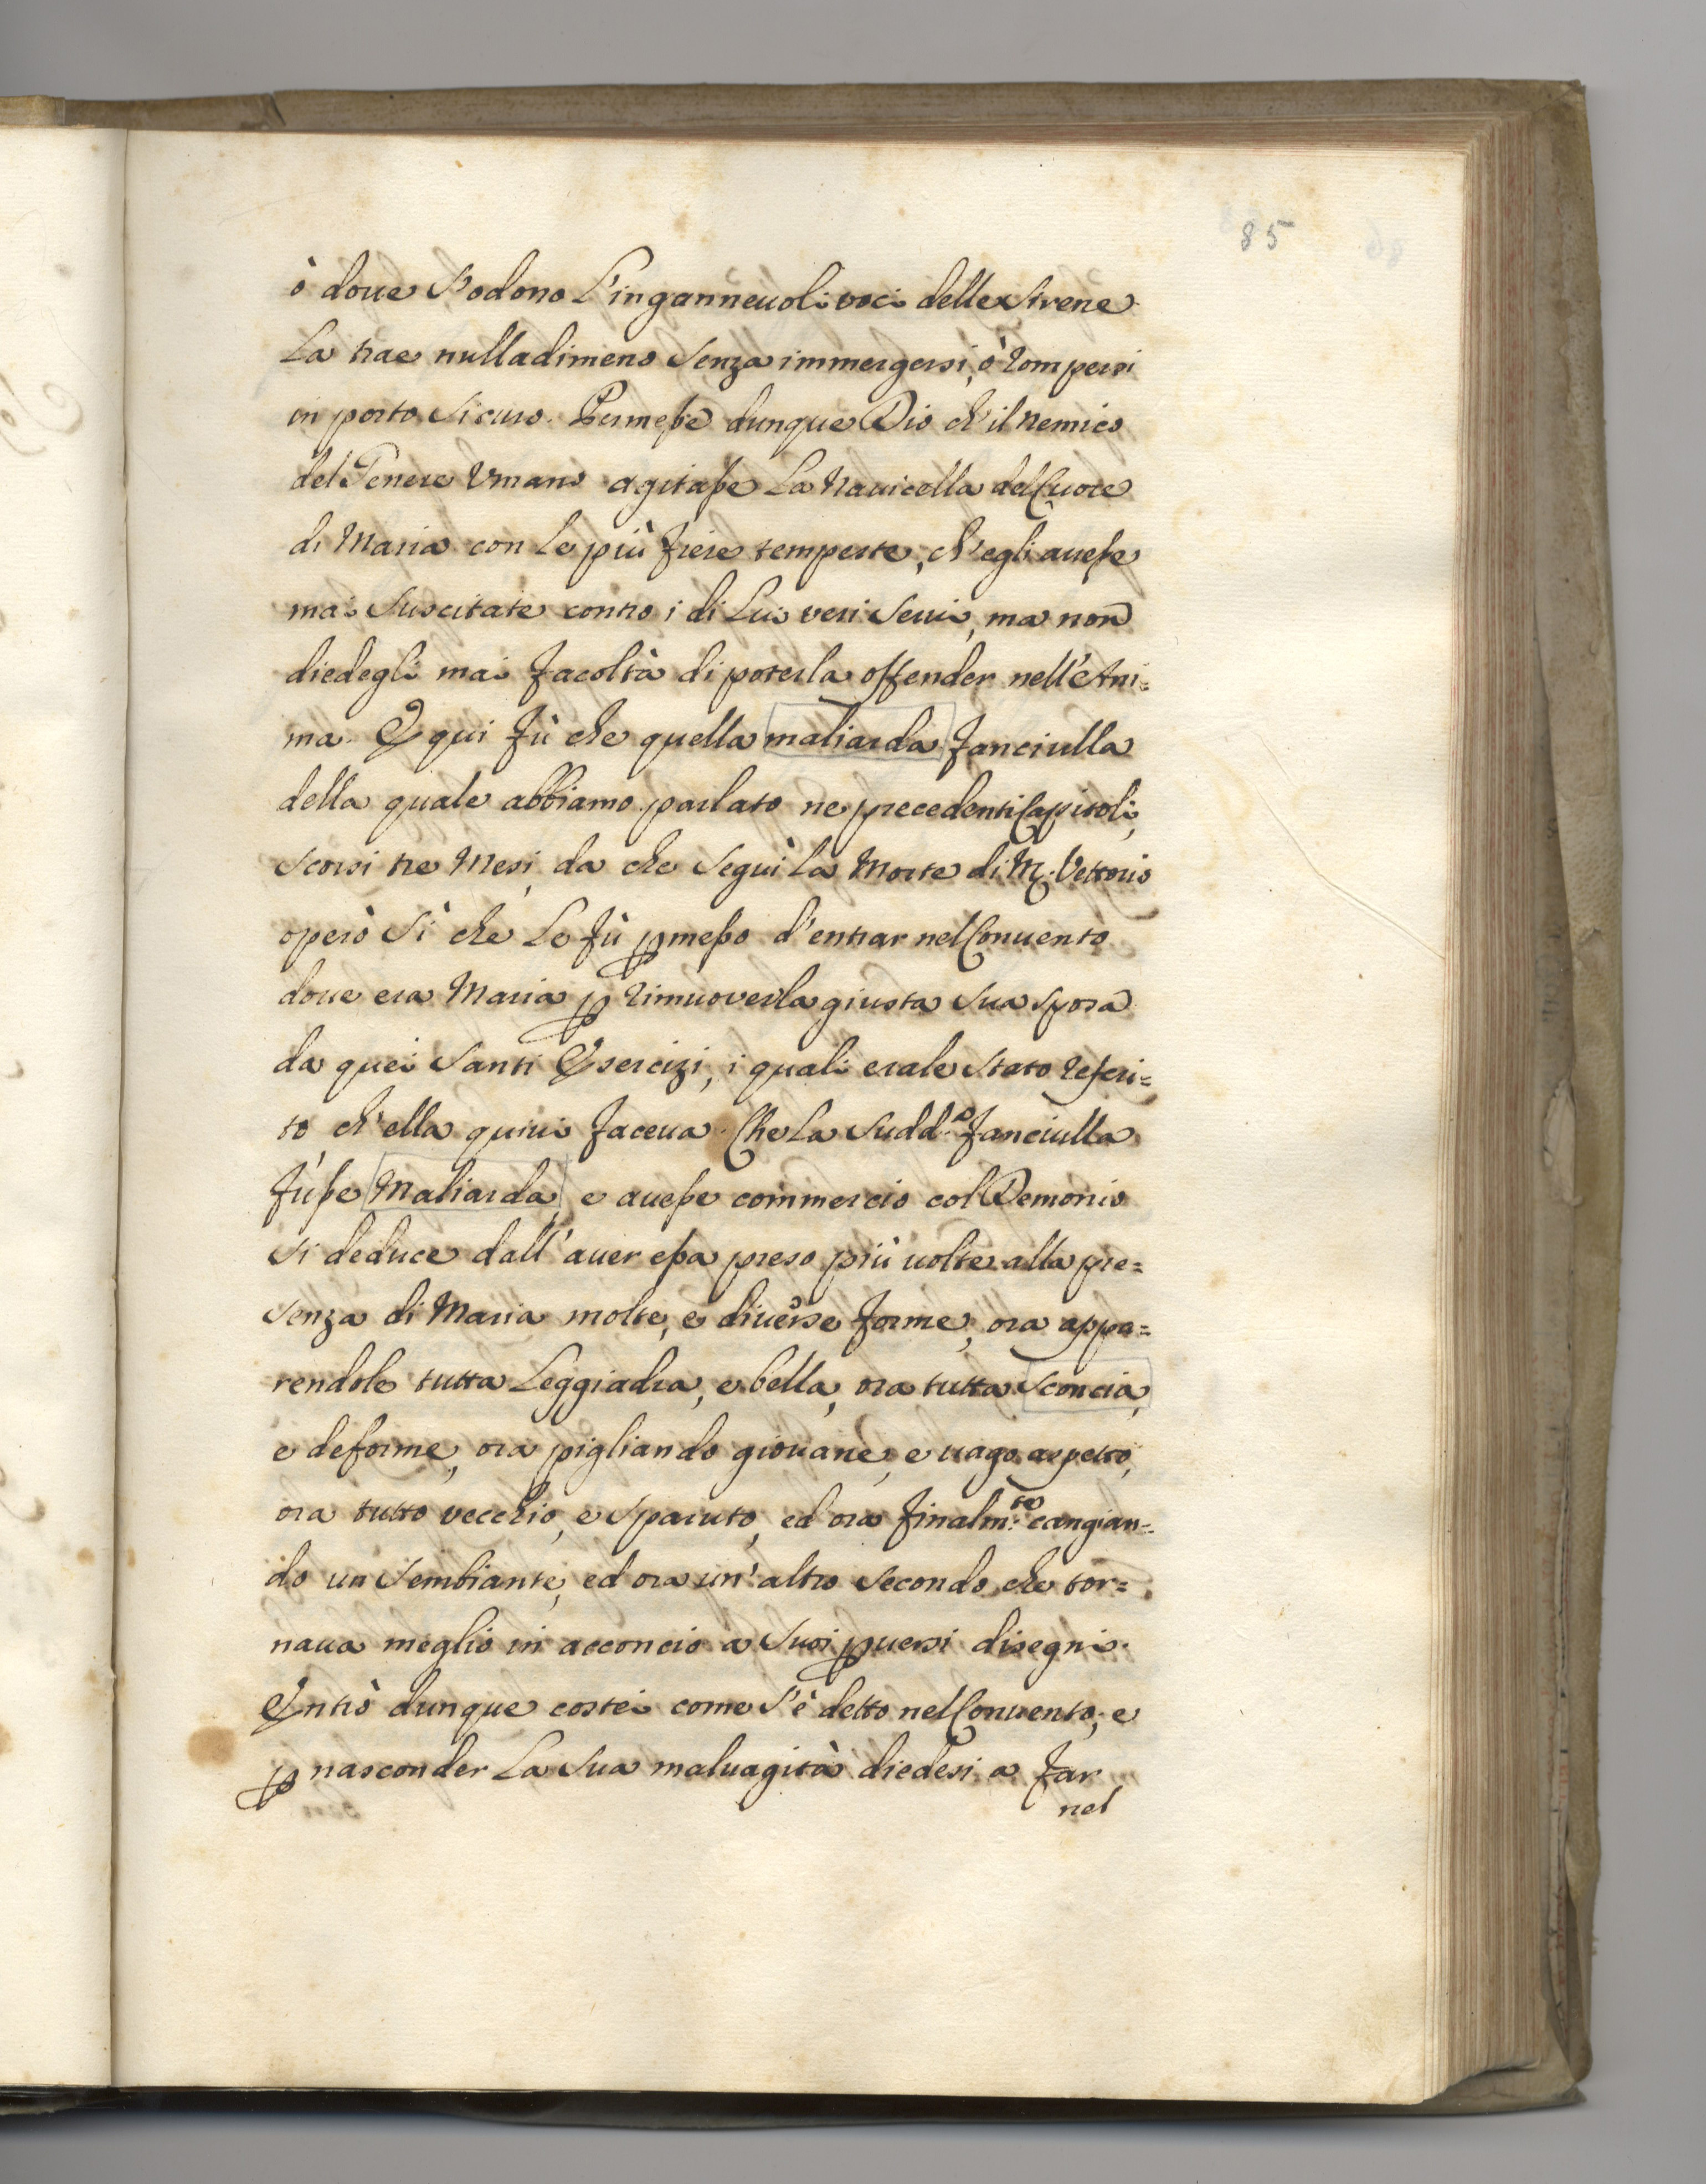 85
ò doue s'odono l'ingannevoli voci delle Sirene
la trae nulladimeno senza immergersi, ò rompersi
in porto sicuro. Permesse dunque Dio ch'il nemico
del Genere Vmano agitasse la Nauicella del Cuore
di Maria con le più fiere tempeste, ch'egli auesse
mai suscitate contro i di Lui veri serui, ma non
diedegli mai facoltà di poterla offender nell'Ani=
ma. E qui fù che quella maliarda fanciulla
della quale abbiamo parlato ne precedenti Capitoli,
scorsi tre Mesi, da che seguì la Morte di M. Vettorio
operò sì che le fù ꝑmesso d'entrar nel Conuento
doue era Maria ꝑ rimuoverla giusta sua sposa
da quei Santi Esercizi, i quali erale stato referi=
to, ch'ella quiui faceua. Che la sudd.a fanciulla
fusse Maliarda, e auesse commercio col Demonio
si deduce dall'auer essa preso più uolte alla pre=
senza di Maria molte, e diuerse forme, ora appa=
rendole tutta leggiadra, e bella, ora tutta sconcia,
e deforme, ora pigliando giouane, e uago aspetto,
ora tutto vecchio, e sparuto, ed ora finalm.te cangian=
do un sembiante, ed ora un'altro secondo, che tor=
naua meglio in acconcio a suoi ꝑuersi disegni.
Entrò dunque costei come s'è detto nel Conuento, e
ꝑ nasconder la sua maluagità diedesi a far
nel